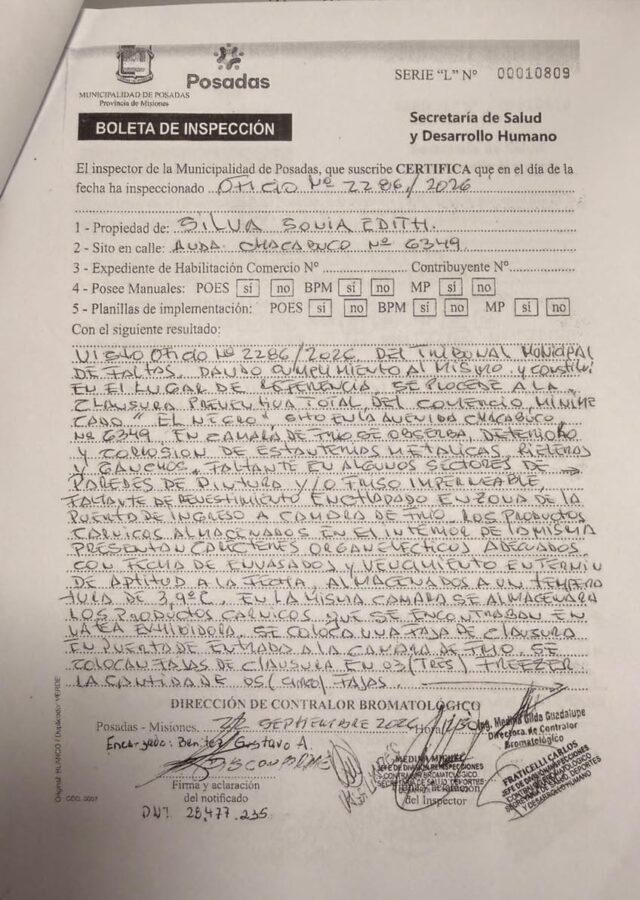 MUNICIPALIDAD DE POSADAS
Provincia de Misiones
Posadas
SERIE "L" Nº 00010809
BOLETA DE INSPECCIÓN
Secretaría de Salud
y Desarrollo Humano
El inspector de la Municipalidad de Posadas, que suscribe CERTIFICA que en el día de la
fecha ha inspeccionado OFICIO Nº 2286/2026
1 - Propiedad de: SILVA SONIA EDITH.
2 - Sito en calle: AVDA. CHACABUCO Nº 6349
3 - Expediente de Habilitación Comercio Nº Contribuyente Nº
4 - Posee Manuales: POES sí no BPM sí no MP sí no
5 - Planillas de implementación: POES sí no BPM sí no MP sí no
Con el siguiente resultado:
VISTO OFICIO Nº 2286/2026 DEL TRIBUNAL MUNICIPAL
DE FALTAS, DANDO CUMPLIMIENTO AL MISMO Y CONSTITUI
EN EL LUGAR DE REFERENCIA SE PROCEDE A LA
CLAUSURA PREVENTIVA TOTAL DEL COMERCIO, MINIME
CADO "EL NEGRO" SITO EN LA AVENIDA CHACABUCO
Nº 6349. EN CAMARA DE FRIO SE OBSERVA, DETERIORO
Y CORROSION DE ESTANTERIAS METALICAS, RIELERAS
Y GANCHOS, FALTANTE EN ALGUNOS SECTORES DE
PAREDES DE PINTURA Y/O FRISO IMPERMEABLE,
FALTANTE DE REVESTIMIENTO ENCHAPADO EN ZONA DE LA
PUERTA DE INGRESO A CAMARA DE FRIO. LOS PRODUCTOS
CARNICOS ALMACENADOS EN EL INTERIOR DE LA MISMA
PRESENTAN CARACTERES ORGANOLECTICOS ADECUADOS
CON FECHA DE ENVASADOS Y VENCIMIENTO EN TERMIN
DE APTITUD A LA FECHA, ALMACENADOS A UN TEMPERA
TURA DE 3,9ºC. EN LA MISMA CAMARA SE ALMACENARA
LOS PRODUCTOS CARNICOS QUE SE ENCONTRABAN EN
LATEA EXHIBIDORA, SE COLOCA UNA FAJA DE CLAUSURA
EN PUERTA DE ENTRADO A LA CAMARA DE FRIO. SE
COLOCAN FAJAS DE CLAUSURA EN 03 (TRES) FREEZER
LA CANTIDAD 05 (CINCO) FAJAS.
DIRECCIÓN DE CONTRALOR BROMATOLÓGICO
Posadas - Misiones, 22 SEPTIEMBRE 2026 Hora
Encargado: Benitez Gustavo A.
DISCONFORME
Ing. Medina Gilda Guadalupe
Directora de Contralor
Bromatológico
Firma y aclaración
del notificado
MEDINA MIGUEL
JEFE DE DIVISION REINSPECCIONES
CONTRALOR BROMATOLOGICO
SECRETARIA DE SALUD, DEPORTES
del Inspector
FRATICELLI CARLOS
Y DESARROLLO HUMANO
DNI 28.477.235
Original: BLANCO / Duplicado: VERDE